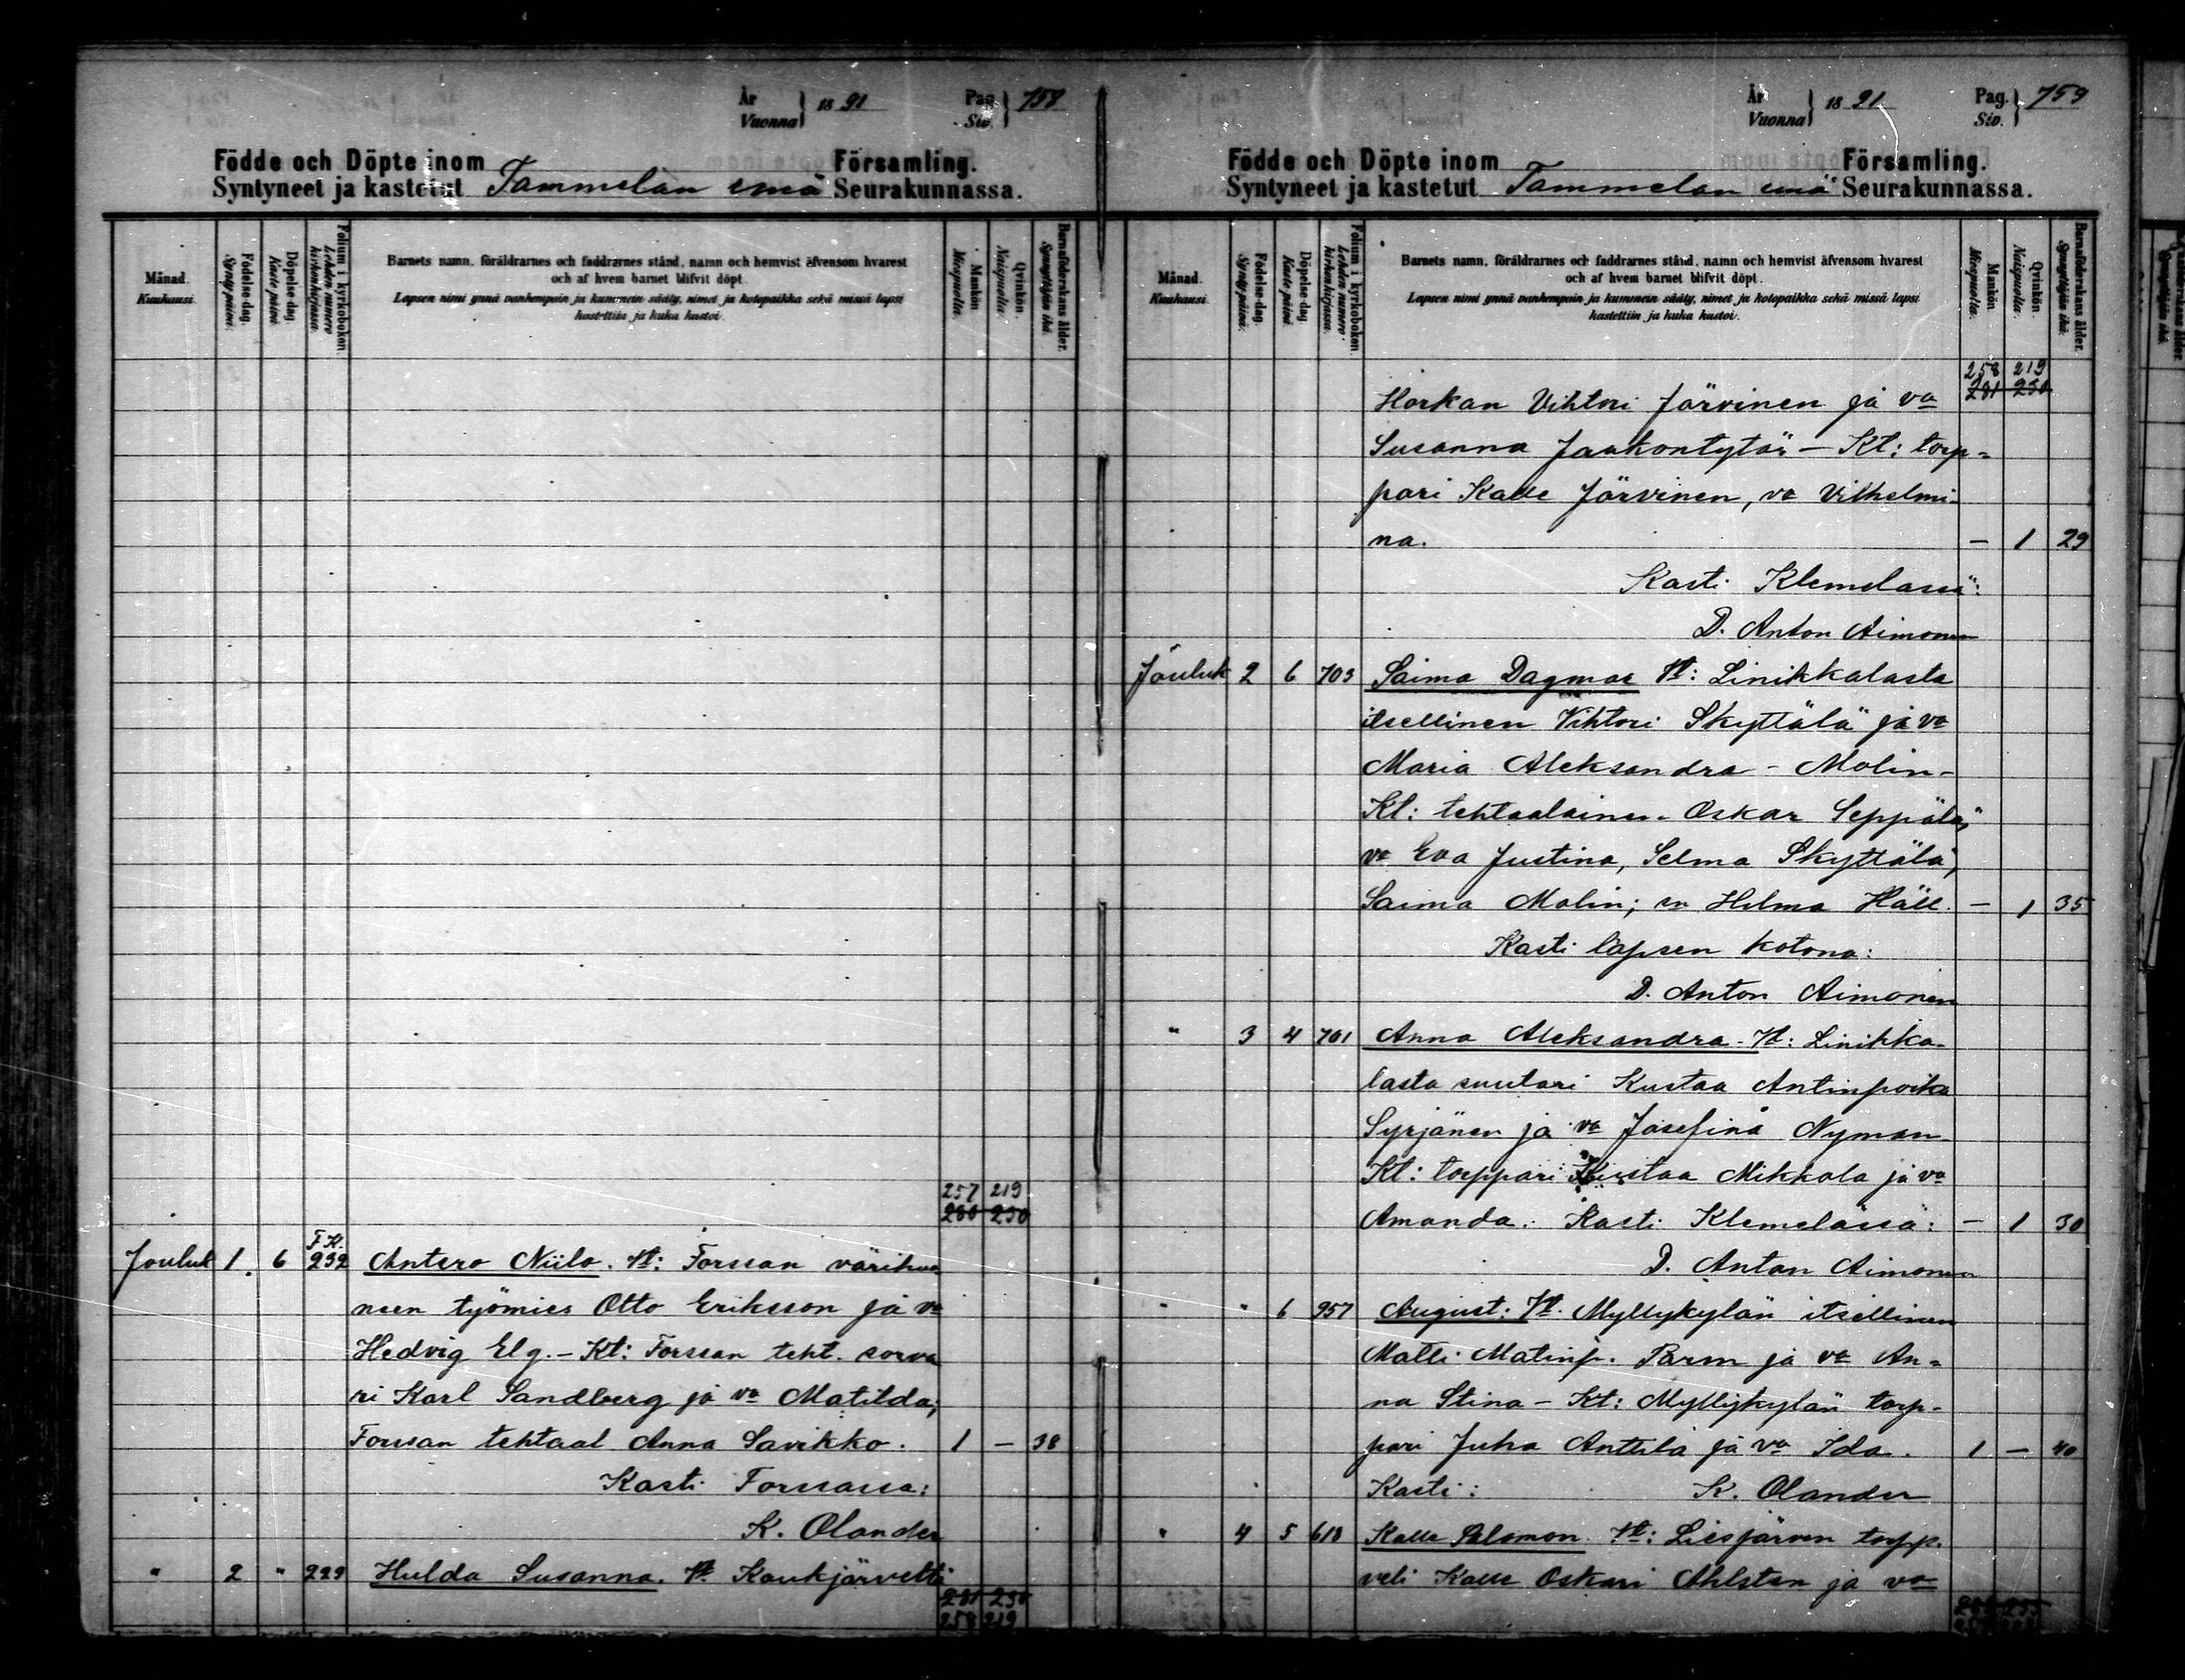 År
Vuonna } 18 91 Pag. Siv. } 758
Födde och Döpte inom Församling.
Syntyneet ja kastetut Tammelan emä Seurakunnassa.
Månad. Kuukausi.
Födelse-dag. Syntypäivä.
Döpelse-dag. Kastepäivä.
Folium i kyrkoboken. Lehden numero kirkonkirjassa.
Barnets namn, föräldrarnes och faddrarnes stånd, namn och hemvist äfvensom hvarest
och af hvem barnet blifvit döpt.
Lapsen nimi ynnä vanhempain ja kummein sääty, nimet ja kotopaikka sekä missä lapsi
kastettiin ja kuka kastoi.
Mankön. Miespuolta.
Qvinkön. Naispuolta.
Barnaföderskans ålder. Synnyttäjän ikä.
257 219
280 230
F.K.
Jouluk 1. 6 232 Antero Niilo. Vt: Forssan värihuo
neen työmies Otto Eriksson ja vo
Hedvig Elg. – Kt: Forssan teht. sorva
ri Karl Sandberg ja vo Matilda;
Forssan tehtaal Anna Savikko. 1 – 38
Kasti Forssassa:
K. Olander
" 2 " 229 Hulda Susanna. Vt. Kaukjärveltä
281 230
258 219
År
Vuonna } 18 91 Pag. Siv. } 759
Födde och Döpte inom Församling.
Syntyneet ja kastetut Tammelan emä Seurakunnassa.
Månad. Kuukausi.
Födelse-dag. Syntypäivä.
Döpelse-dag. Kastepäivä.
Folium i kyrkoboken. Lehden numero kirkonkirjassa.
Barnets namn, föräldrarnes och faddrarnes stånd, namn och hemvist äfvensom hvarest
och af hvem barnet blifvit döpt.
Lapsen nimi ynnä vanhempain ja kummein sääty, nimet ja kotopaikka sekä missä lapsi
kastettiin ja kuka kastoi.
Mankön. Miespuolta.
Qvinkön. Naispuolta.
Barnaföderskans ålder. Synnyttäjän ikä.
258 219
281 230
Horkan Vihtori Järvinen ja vo
Susanna Jaakontytär – Kt: torp-
pari Kalle Järvinen, vo Vilhelmi-
na. – 1 29
Kasti Klemelässä:
D. Anton Aimonen
Jouluk 2 6 703 Saima Dagmar Vt: Linikkalasta
itsellinen Vihtori Skyttälä ja vo
Maria Aleksandra – Molin –
Kt: tehtaalainen Oskar Seppälä,
vo Eva Justina, Selma Skyttälä,
Saima Molin; sn Hilma Häll. – 1 35
Kasti lapsen kotona:
D. Anton Aimonen
" 3 4 701 Anna Aleksandra – Vt: Linikka-
lasta suutari Kustaa Antinpoika
Syrjänen ja vo Josefina Nyman –
Kt: torppari Kustaa Mikkola ja vo
Amanda. Kasti Klemelässä: – 1 30
D. Anton Aimonen
" " 6 957 August: Vt. Myllykylän itsellinen
Matti Matinp. Parm ja vo An-
na Stina – Kt: Myllykylän torp-
pari Juha Anttila ja vo Ida. 1 – 40
Kasti: K. Olander
" 4 5 618 Kalle Salomon. Vt: Liesjärven torpp.
veli Kalle Oskari Ahlsten ja vo